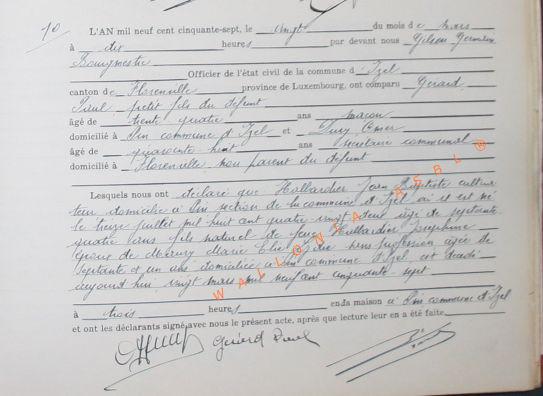 10
L'AN mil neuf cent cinquante-sept, le vingt du mois de mars
à dix heures par devant nous Gilson Germain
Bourgmestre
Officier de l'état civil de la commune d'Izel
canton de Florenville province de Luxembourg, ont comparu Gérard
Paul petit fils du défunt
âgé de trente quatre ans maçon
domicilié à Pin commune d'Izel et Omer
âgé de quarante huit ans secrétaire communal
domicilié à Florenville non parent du défunt
Lesquels nous ont déclaré que Hollardier Jean Baptiste cultiva
teur domicilié à Pin section de la commune d'Izel où il est né
le treize juillet mil huit cent quatre vingt deux âgé de septante
quatre ans fils naturel de feue Hollardier Joséphine
époux de Marie sans profession âgée de
septante et un ans domiciliée à Pin commune d'Izel est décédé
aujourd'hui vingt mars mil neuf cent cinquante sept
à trois heures en sa maison à Pin commune d'Izel
et ont les déclarants signé avec nous le présent acte, après que lecture leur en a été faite.
Gérard Paul
WALLONIA ASBL ®